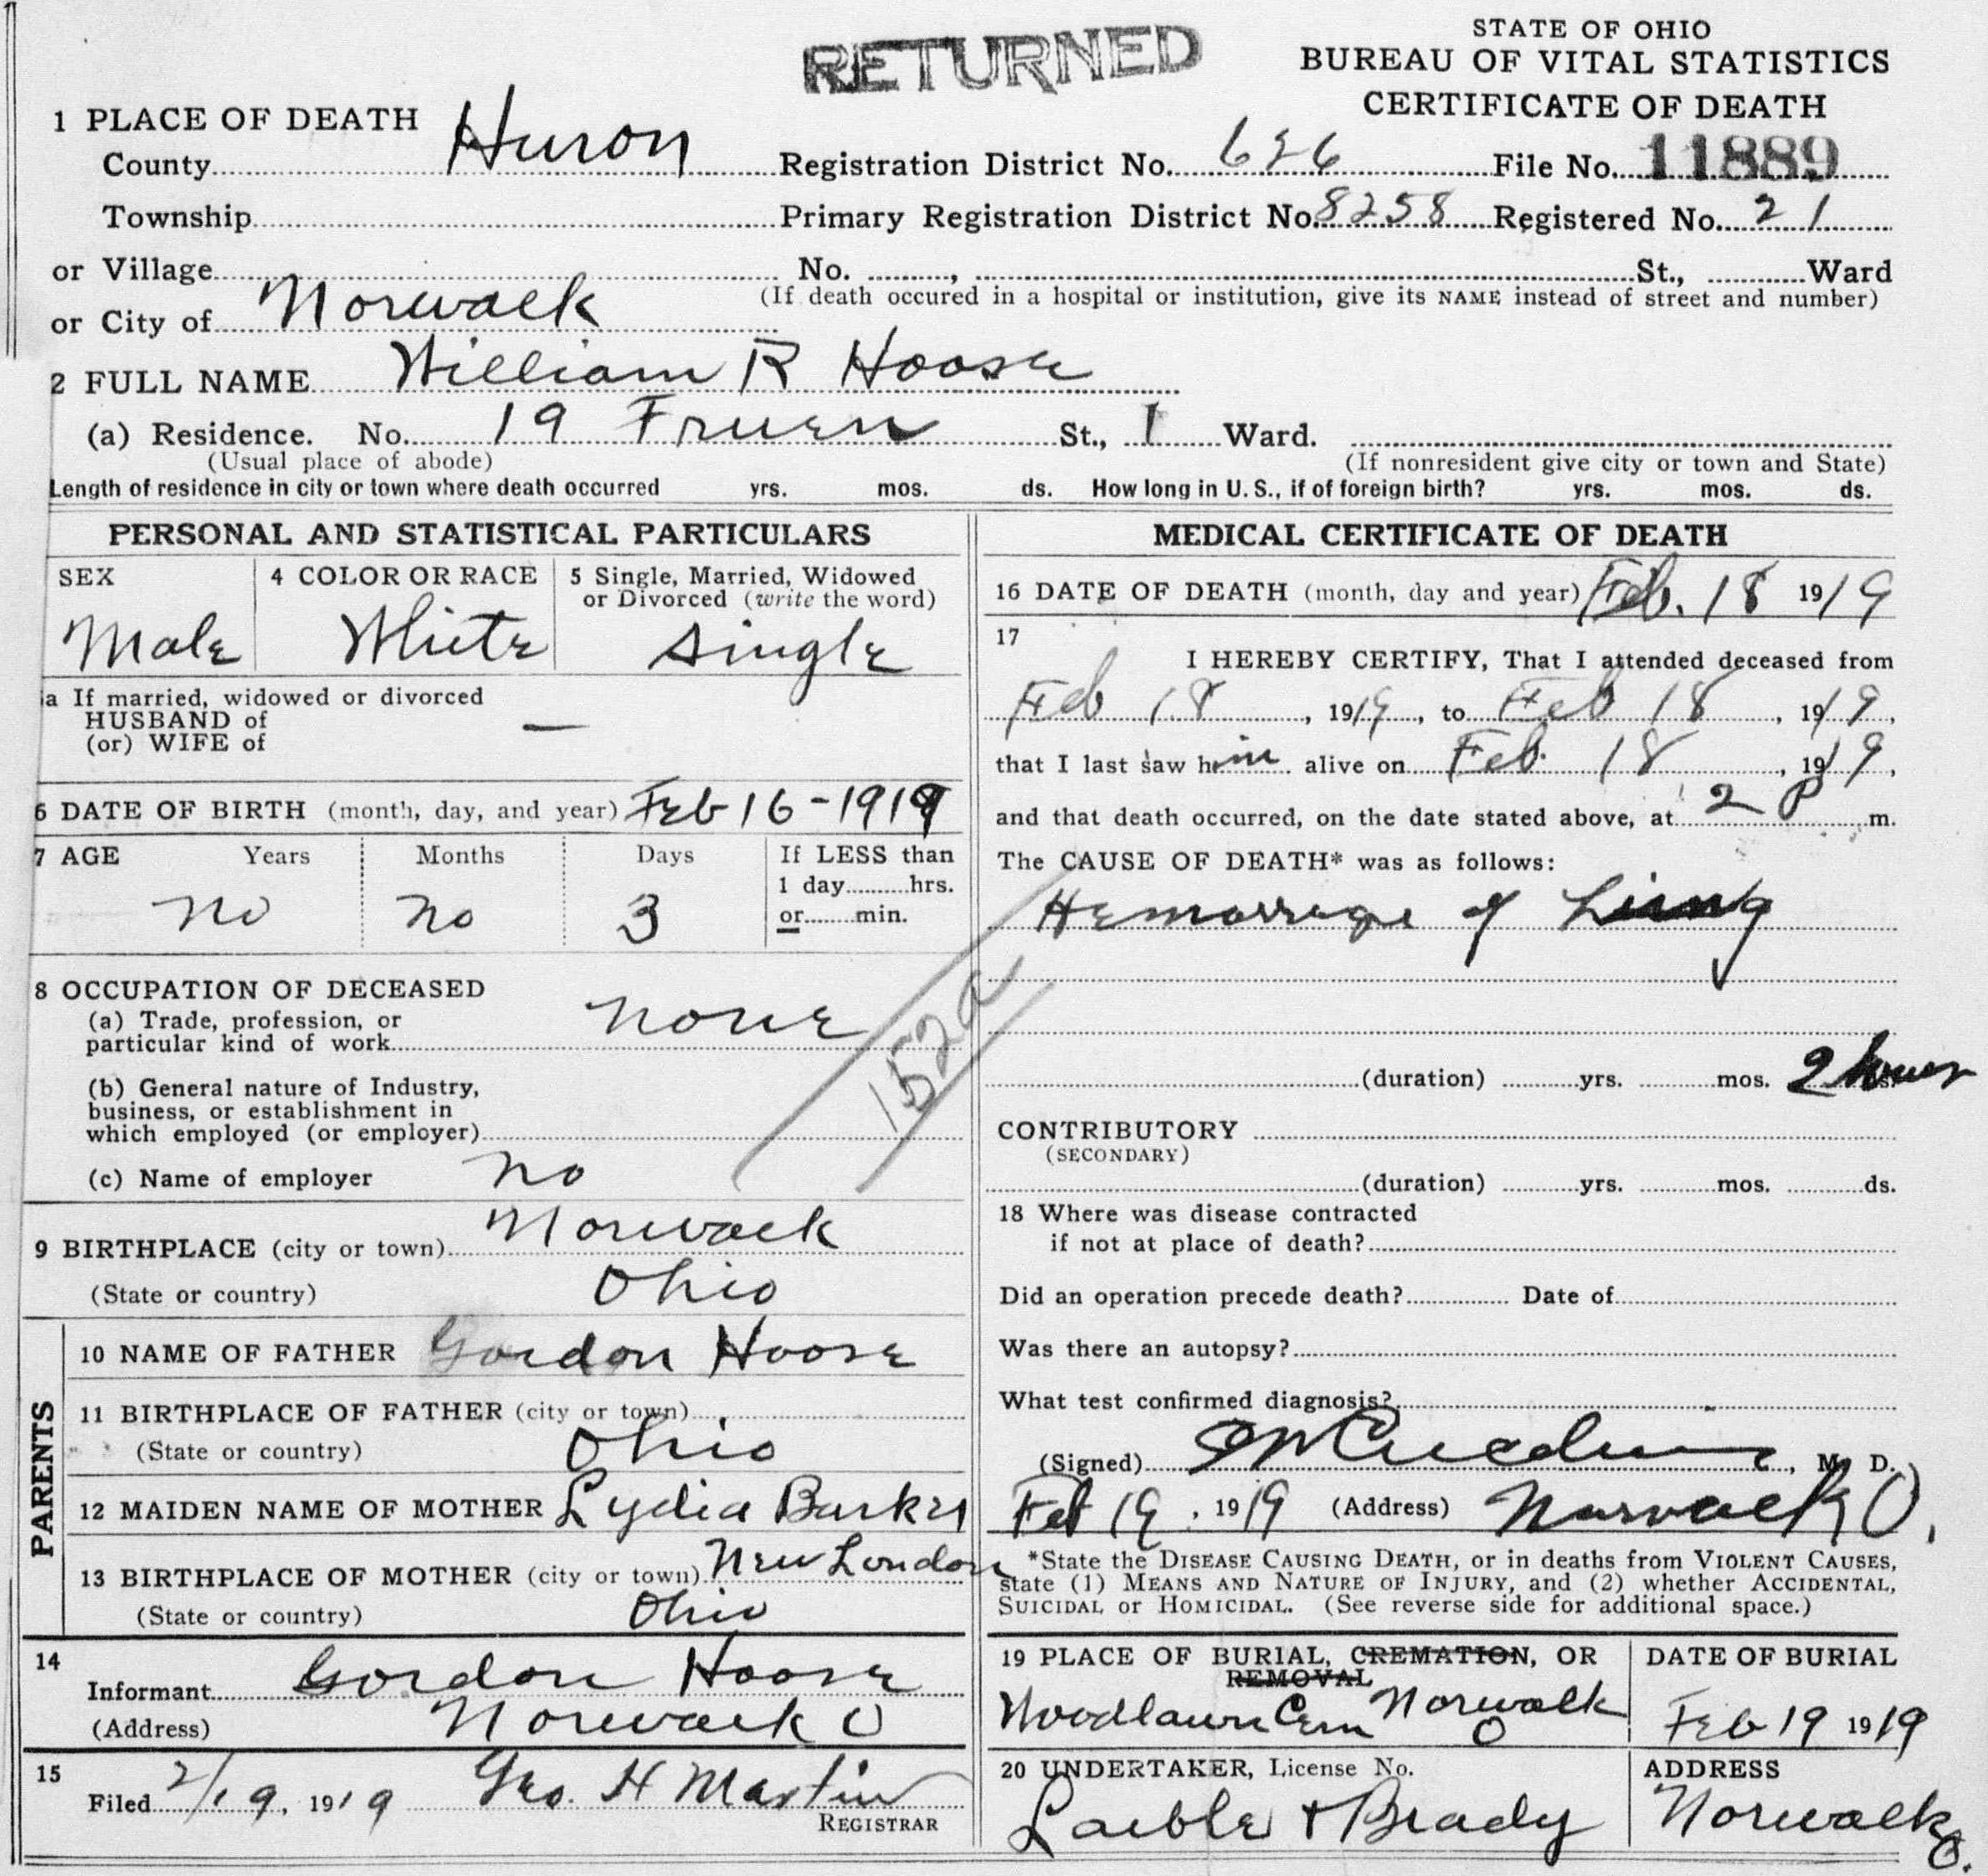 RETURNED
STATE OF OHIO
BUREAU OF VITAL STATISTICS
CERTIFICATE OF DEATH
1 PLACE OF DEATH
County Huron Registration District No. 626 File No. 11889
Township Primary Registration District No. 8258 Registered No. 21
or Village No. , St., Ward
(If death occured in a hospital or institution, give its NAME instead of street and number)
or City of Norwalk
2 FULL NAME William R Hoose
(a) Residence. No. 19 Fruen St., 1 Ward.
(Usual place of abode) (If nonresident give city or town and State)
Length of residence in city or town where death occurred yrs. mos. ds. How long in U. S., if of foreign birth? yrs. mos. ds.
PERSONAL AND STATISTICAL PARTICULARS
SEX 4 COLOR OR RACE 5 Single, Married, Widowed
or Divorced (write the word)
Male White Single
a If married, widowed or divorced
HUSBAND of
(or) WIFE of —
6 DATE OF BIRTH (month, day, and year) Feb 16-1919
7 AGE Years Months Days If LESS than
1 day hrs.
no no 3 or min.
8 OCCUPATION OF DECEASED
(a) Trade, profession, or
particular kind of work none
(b) General nature of Industry,
business, or establishment in
which employed (or employer)
(c) Name of employer no
152a
9 BIRTHPLACE (city or town) Norwalk
(State or country) Ohio
PARENTS
10 NAME OF FATHER Gordon Hoose
11 BIRTHPLACE OF FATHER (city or town)
(State or country) Ohio
12 MAIDEN NAME OF MOTHER Lydia Barker
13 BIRTHPLACE OF MOTHER (city or town) New London
(State or country) Ohio
14
Informant Gordon Hoose
(Address) Norwalk O
15
Filed 2/19, 1919 Geo. H Martin
REGISTRAR
MEDICAL CERTIFICATE OF DEATH
16 DATE OF DEATH (month, day and year) Feb. 18 1919
17
I HEREBY CERTIFY, That I attended deceased from
Feb 18, 1919, to Feb 18, 1919,
that I last saw him alive on Feb. 18, 1919,
and that death occurred, on the date stated above, at 2 P m.
The CAUSE OF DEATH* was as follows:
Hemorrage of Lung
(duration) yrs. mos. 2 hours
CONTRIBUTORY
(SECONDARY)
(duration) yrs. mos. ds.
18 Where was disease contracted
if not at place of death?
Did an operation precede death? Date of
Was there an autopsy?
What test confirmed diagnosis?
(Signed) , M. D.
Feb 19, 1919 (Address) Norwalk O.
*State the DISEASE CAUSING DEATH, or in deaths from VIOLENT CAUSES,
state (1) MEANS AND NATURE OF INJURY, and (2) whether ACCIDENTAL,
SUICIDAL or HOMICIDAL. (See reverse side for additional space.)
19 PLACE OF BURIAL, CREMATION, OR
REMOVAL
DATE OF BURIAL
Woodlawn Cem Norwalk O
Feb 19 1919
20 UNDERTAKER, License No. ADDRESS
Laible + Brady Norwalk O.